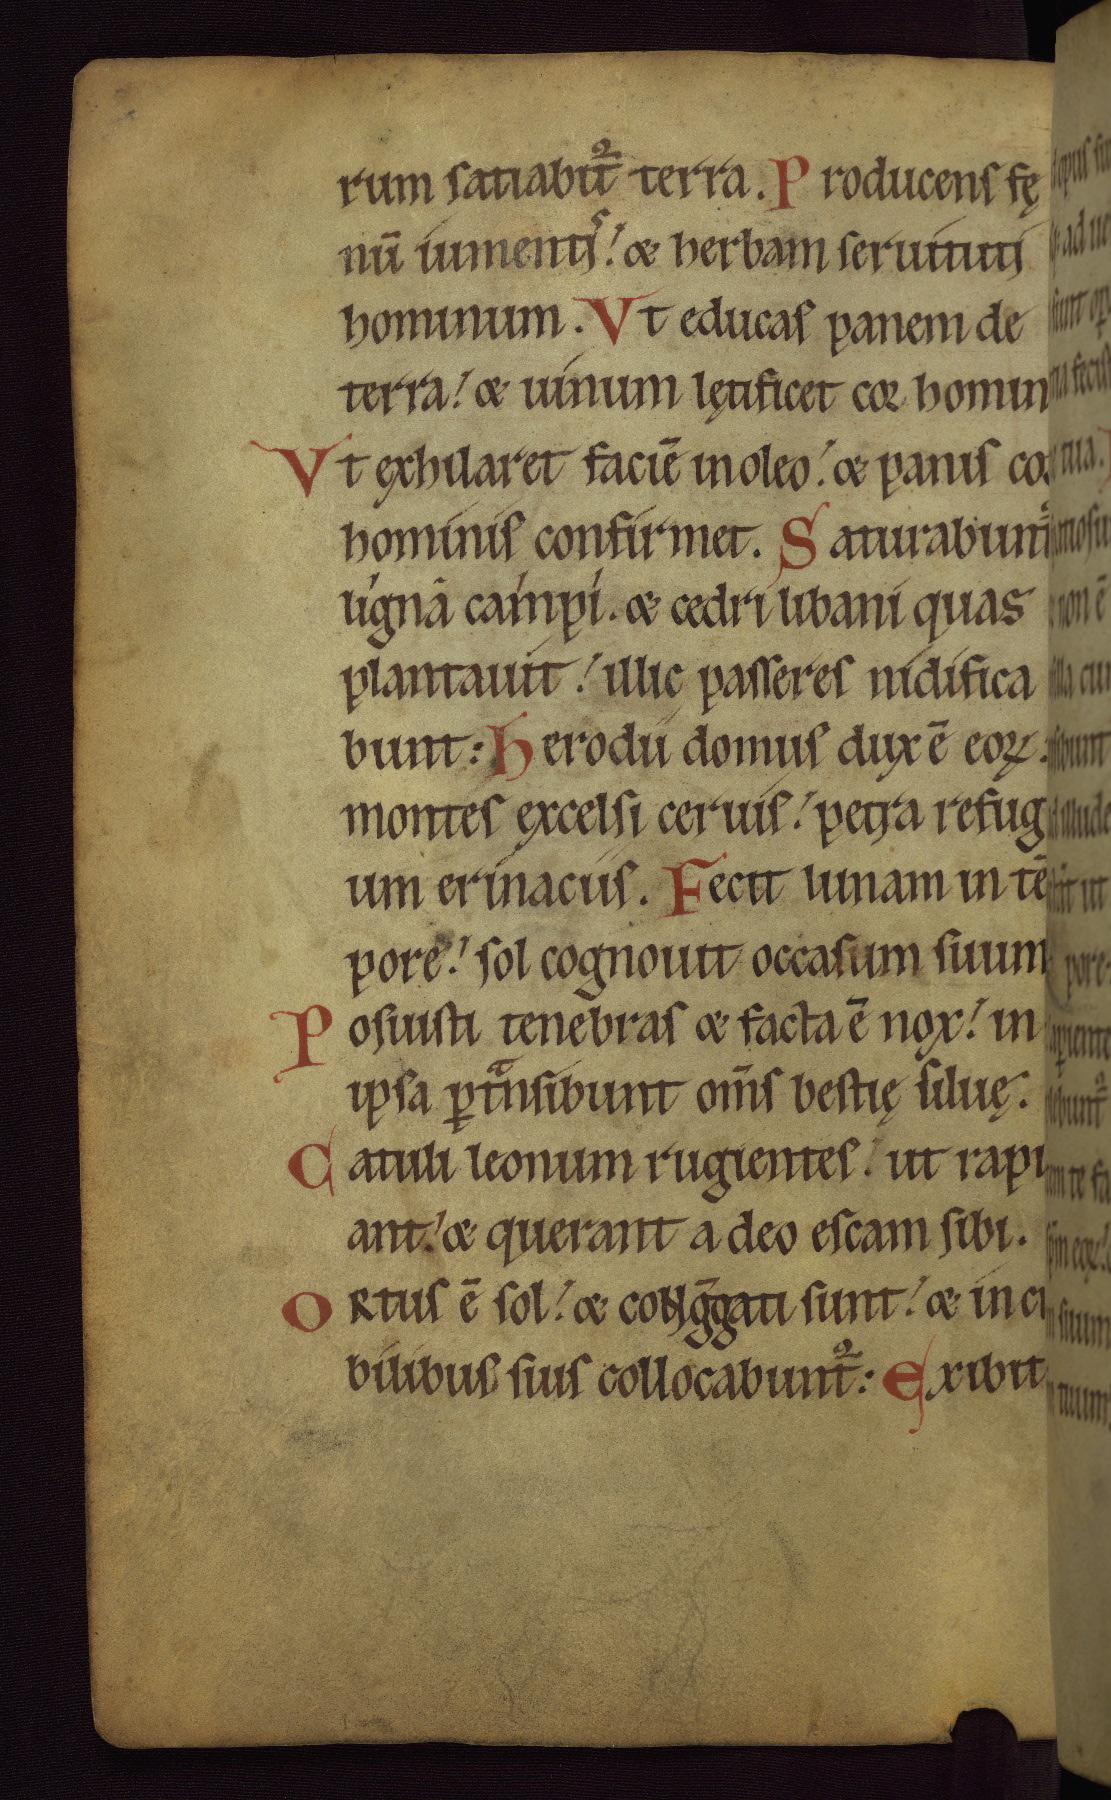 rum satiabit̄² terra. Producens fę
nū iumentis! & herbam seruituti
hominum. Vt educas panem de
terra! & uinum lętificet cor homin
Vt exhilaret faciē in oleo! & panis co
hominis confirmet. Saturabunt
lignā campi. & cedri libani quas
plantauit! illic passeres nidifica
bunt: Herodii domus dux ē eoꝝ.
montes excelsi ceruis! petra refug
um erinaciis. Fecit lunam in tē
pore! sol cognouit occasum suum
Posuisti tenebras & facta ē nox! in
ipsa ꝑtͣnsibunt om̄s bestię siluę.
Catuli leonum rugientes! ut rapi
ant! & querant a deo escam sibi.
Ortus ē sol! & cong̅gati sunt! & in cu
bilibus suis collocabunt̄²: Exibit